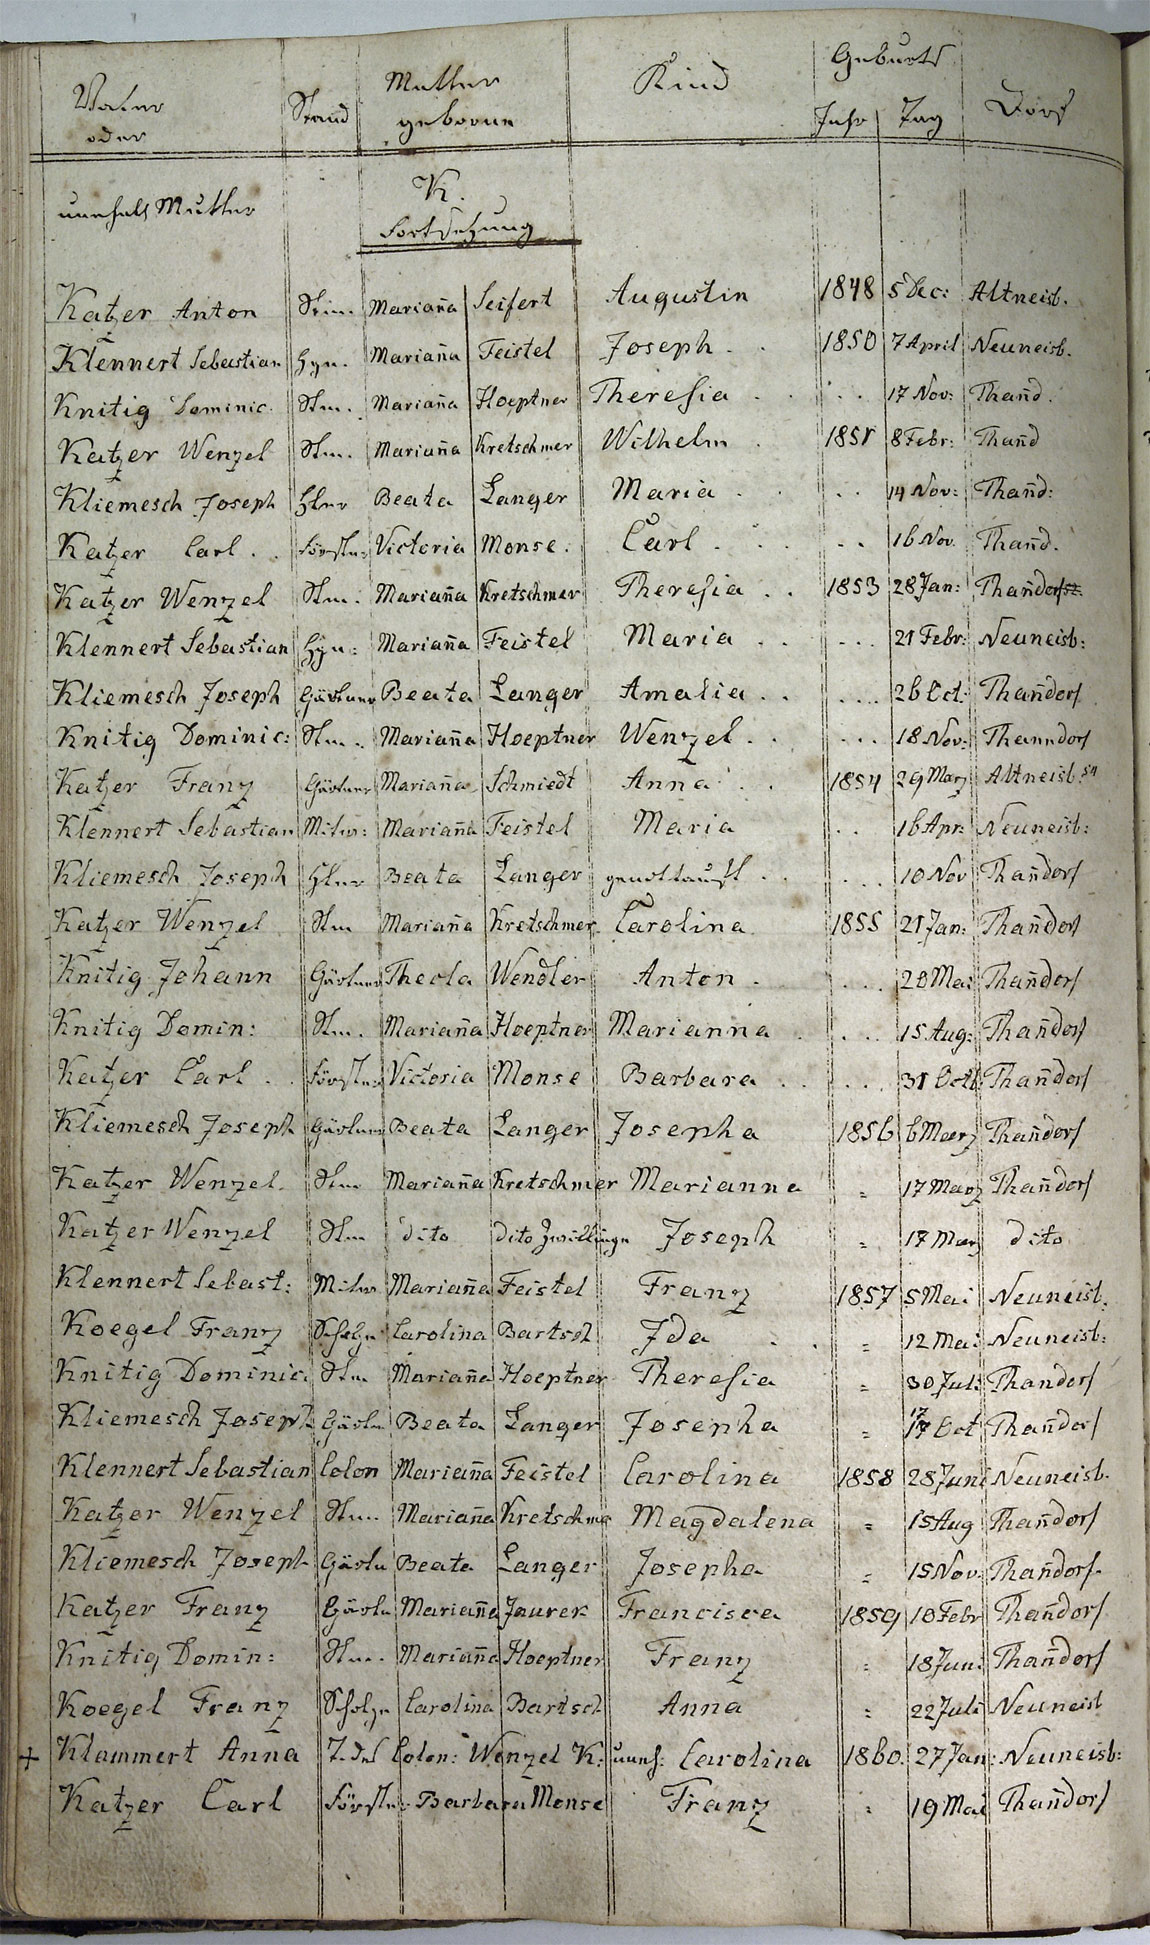 Vater oder Stand Mutter geborne Kind Geburts Jahr Tag Dorf
unehel. Mutter
K.
Fortsetzung
Katzer Anton Stm. Mariana Seifert Augustin 1848 5 Dec: Altneisb.
Klennert Sebastian Mariana Feistel Joseph . . 1850 7 April Neuneisb.
Knitig Dominic. Stm. Mariana Hoeptner Theresia . . . . 17 Nov: Thand.
Katzer Wenzel Stm. Mariana Kretschmer Wilhelm . 1851 8 Febr: Thand
Kliemesch Joseph Beata Langer Maria . . . . 14 Nov: Thand:
Katzer Carl . . Förster Victoria Monse . Carl . . . . . 16 Nov. Thand.
Katzer Wenzel Stm. Mariana Kretschmer Theresia . . 1853 28 Jan: Thandorf
Klennert Sebastian Mariana Feistel Maria . . . . . 21 Febr: Neuneisb:
Kliemesch Joseph Gärtner Beata Langer Amalia . . . . . . 26 Oct: Thandorf
Knitig Dominic: Stm. Mariana Hoeptner Wenzel . . . . . 18 Nov: Thanndorf
Katzer Franz Gärtner Mariana Schmiedt Anna . . 1854 29 Marz Altneisb. 54
Klennert Sebastian Mariana Feistel Maria . . 16 Apr: Neuneisb:
Kliemesch Joseph Beata Langer genottauft . . . . . 10 Nov Thandorf
Katzer Wenzel Stm Mariana Kretschmer Carolina 1855 21 Jan: Thandorf
Knitig Johann Gärtner Thecla Wendler Anton . . . . 28 Mai Thandorf
Knitig Domin: Stm. Mariana Hoeptner Marianna . . . . 15 Aug: Thandorf
Katzer Carl . . Förster Victoria Monse Barbara . . . . . 31 Octb: Thandorf
Kliemesch Joseph Gärtner Beata Langer Josepha 1856 6 Maerz Thandorf
Katzer Wenzel. Stm Mariana Kretschmer Marianna = 17 Marz Thandorf
Katzer Wenzel Stm dito dito Zwillinge Joseph = 17 Marz dito
Klennert Sebast: Mariana Feistel Franz 1857 5 Mai Neuneisb.
Koegel Franz Scholze Carolina Bartsch Ida . . = 12 Mai Neuneisb:
Knitig Dominic. Stm Mariana Hoeptner Theresia = 30 Juli Thandorf
Kliemesch Joseph Gärtn Beata Langer Josepha = 17 Oct Thandorf
Klennert Sebastian Colon Mariana Feistel Carolina 1858 28 Juni Neuneisb.
Katzer Wenzel Stm. Mariana Kretschmer Magdalena = 15 Aug Thandorf
Kliemesch Joseph Gärtn Beata Langer Josepha = 15 Nov. Thandorf.
Katzer Franz Gärtn Mariana Jaurek Francisca 1859 10 Febr Thandorf
Knitig Domin: Stm. Mariana Hoeptner Franz = 18 Juni Thandorf
Koegel Franz Scholze Carolina Bartsch Anna = 22 Juli Neuneisb
+ Klammert Anna T. des Colon: Wenzel K: uneh: Carolina 1860. 27 Jan: Neuneisb:
Katzer Carl Förster Barbara Monse Franz = 19 Mai Thandorf